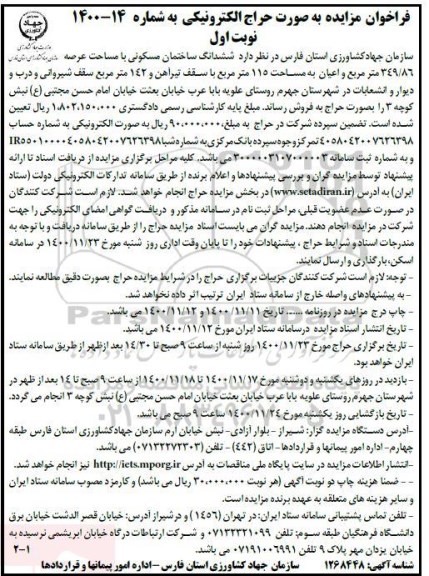 فراخوان مزایده به صورت حراج الکترونیکی به شماره ۱۴-۱۴۰۰
نوبت اول
سازمان جهادکشاورزی استان فارس در نظر دارد ششدانگ ساختمان مسکونی با مساحت عرصه
۳۴۹/۸۶ متر مربع و اعیان به مساحت ۱۱۵ متر مربع با سقف تیرآهن و ۱۴۲ متر مربع سقف شیروانی و درب و
دیوار و انشعابات در شهرستان جهرم روستای علویه بابا عرب خیابان بعثت خیابان امام حسن مجتبی (ع) نبش
کوچه ۳ را بصورت حراج به فروش رساند. مبلغ پایه کارشناسی رسمی دادگستری ۱،۸۰۲،۱۵۰،۰۰۰ ریال تعیین
شده است. تضمین سپرده شرکت در حراج به مبلغ ۹۰،۰۰۰،۰۰۰ ریال به صورت الکترونیکی به شماره حساب
۴۰۵۸۰۴۲۰۰۷۶۲۶۳۹۸ تمرکز وجوه سپرده بانک مرکزی به شماره شبا
و به شماره ثبت سامانه ۳۰۰۰۰۰۳۱۰۷۰۰۰۰۰۳ می باشد. کلیه مراحل برگزاری مزایده از دریافت اسناد تا ارائه
پیشنهاد توسط مزایده گران و بررسی پیشنهادها و اعلام برنده از طریق سامانه تدارکات الکترونیکی دولت (ستاد
ایران) به آدرس (www.setadiran.ir) در بخش مزایده حراج انجام خواهد شد. لازم است شرکت کنندگان
در صورت عدم عضویت قبلی، مراحل ثبت نام در سامانه مذکور و دریافت گواهی امضای الکترونیکی را جهت
شرکت در مزایده انجام دهند. مزایده گران می بایست اسناد مزایده حراج را از طریق سامانه دریافت و با توجه به
مندرجات اسناد و شرایط حراج، پیشنهادات خود را تا پایان وقت اداری روز شنبه مورخ ۱۴۰۰/۱۱/۲۳ در سامانه
اسکن، بارگذاری و ارسال نمایند.
- توجه: لازم است شرکت کنندگان جزییات برگزاری حراج را در شرایط مزایده حراج بصورت دقیق مطالعه نمایند.
- به پیشنهادهای واصله خارج از سامانه ستاد ایران ترتیب اثر داده نخواهد شد.
- چاپ درج مزایده در روزنامه ...... تاریخ ۱۴۰۰/۱۱/۱۱ و ۱۴۰۰/۱۱/۱۲ می باشد.
- تاریخ انتشار اسناد مزایده درسامانه ستاد ایران مورخ ۱۴۰۰/۱۱/۱۲ می باشد.
- تاریخ برگزاری حراج مورخ ۱۴۰۰/۱۱/۲۳ روز شنبه از ساعت ۹ صبح تا ۱۴/۳۰ بعد ازظهر از طریق سامانه ستاد
ایران خواهد بود.
- بازدید در روزهای یکشنبه و دوشنبه مورخ ۱۴۰۰/۱۱/۱۷ تا ۱۴۰۰/۱۱/۱۸ از ساعت ۹ صبح تا ۱۴ بعد از ظهر در
شهرستان جهرم روستای علویه بابا عرب خیابان بعثت خیابان امام حسن مجتبی (ع) نبش کوچه ۳ انجام می گردد.
- تاریخ بازگشایی روز یکشنبه مورخ ۱۴۰۰/۱۱/۲۴ ساعت ۹ صبح می باشد.
-آدرس دستگاه مزایده گزار: شیراز - بلوار آزادی- نبش خیابان ارم سازمان جهادکشاورزی استان فارس طبقه
چهارم- اداره امور پیمانها و قراردادها- اتاق (۴۴۲) - تلفن (۰۷۱۳۲۲۷۲۳۰۳) می باشد.
-انتشار اطلاعات مزایده در سایت پایگاه ملی مناقصات به آدرس http://iets.mporg.ir نیز انجام خواهد شد.
- - ضمنا هزینه چاپ دو نوبت آگهی (هر نوبت ۳۰،۰۰۰،۰۰۰ ریال می باشد) و کارمزد مصوب سامانه ستاد ایران و
و سایر هزینه های متعلقه به عهده برنده مزایده است.
- تلفن تماس پشتیبانی سامانه ستاد ایران: در تهران (۱۴۵۶) و در شیراز آدرس: خیابان قصر الدشت خیابان برق
دانشگاه فرهنگیان طبقه سوم: تلفن ۰۷۱۳۲۳۲۱۰۹۹ و شرکت ارتباطات درگاه خیابان ابریشمی نرسیده به
خیابان یزدان مهر پلاک ۹ تلفن ۰۷۱۹۱۰۰۶۹۹۱ می باشد.
۲-۱
شناسه آگهی: ۱۲۶۸۴۴۸ سازمان جهاد کشاورزی استان فارس – اداره امور پیمانها و قراردادها